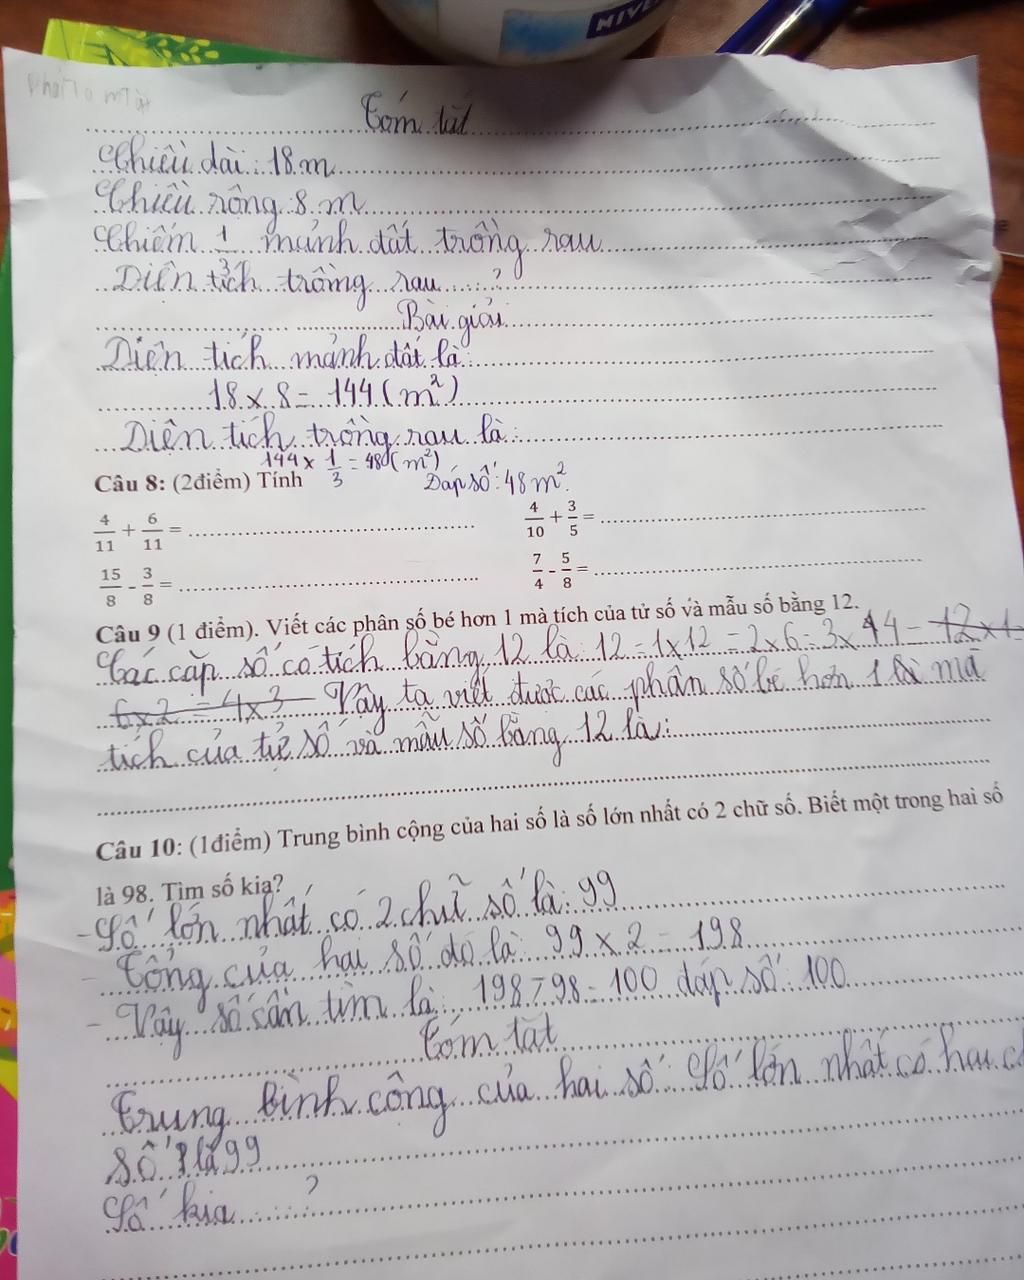 NIVE
Tóm tắt
Chiều dài: 18 m
Chiều rộng 8 m
Chiếm 1/3 mảnh đất trồng rau
Diện tích trồng rau ?
Bài giải
Diện tích mảnh đất là:
18 x 8 = 144 (m²)
Diện tích trồng rau là:
144 x 1/3 = 48 (m²)
Câu 8: (2điểm) Tính Đáp số: 48 m².
4/11 + 6/11 = 4/10 + 3/5 =
15/8 - 3/8 = 7/4 - 5/8 =
Câu 9 (1 điểm). Viết các phân số bé hơn 1 mà tích của tử số và mẫu số bằng 12.
Các cặp số có tích bằng 12 là: 12 = 1x12 = 2x6 = 3x4 = 12x1=
6x2 = 4x3 Vậy ta viết được các phân số bé hơn 1 mà
tích của tử số và mẫu số bằng 12 là:
Câu 10: (1điểm) Trung bình cộng của hai số là số lớn nhất có 2 chữ số. Biết một trong hai số
là 98. Tìm số kia?
- Số lớn nhất có 2 chữ số là: 99
- Tổng của hai số đó là: 99 x 2 = 198
- Vậy số cần tìm là: 198 - 98 = 100 đáp số: 100
Tóm tắt
Trung bình cộng của hai số: Số lớn nhất có hai
số là 99
Số kia ?